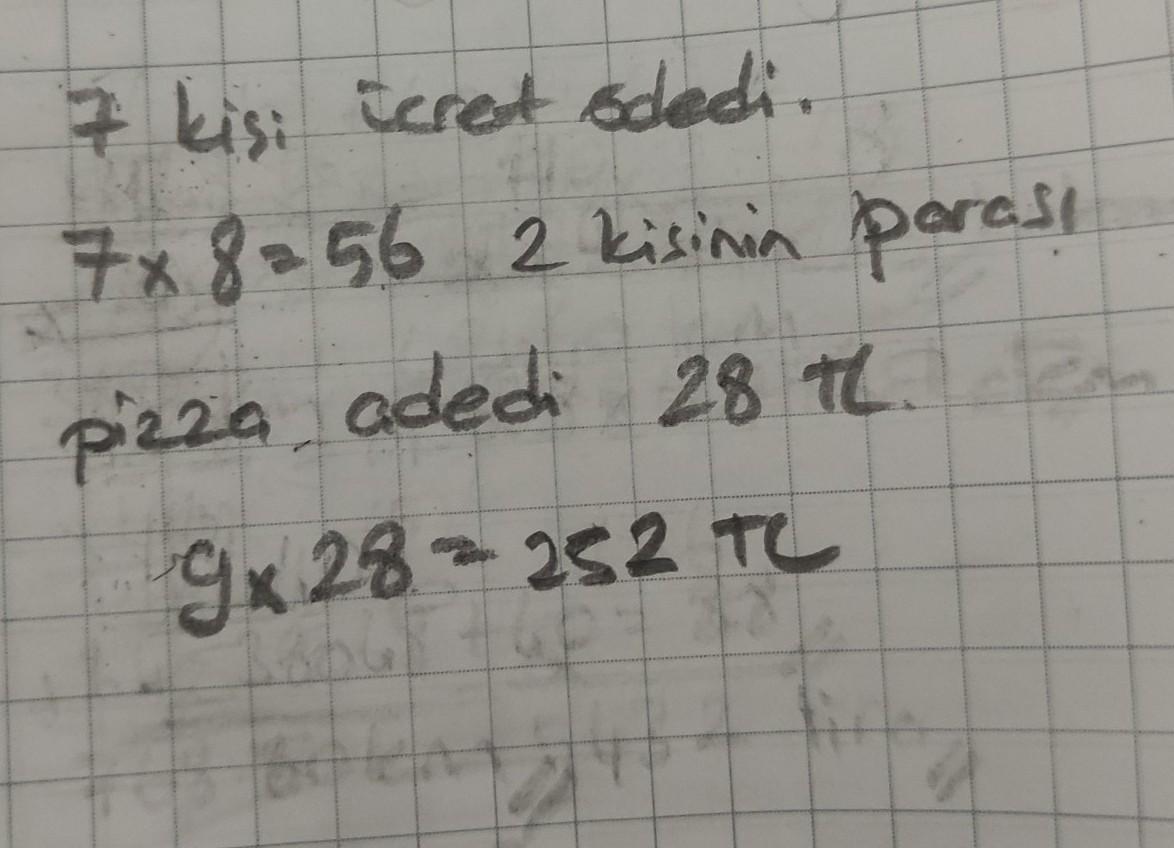 7 kişi ücret ödedi.
7 x 8 = 56 2 kişinin parası
pizza adedi 28 TL.
9 x 28 = 252 TL